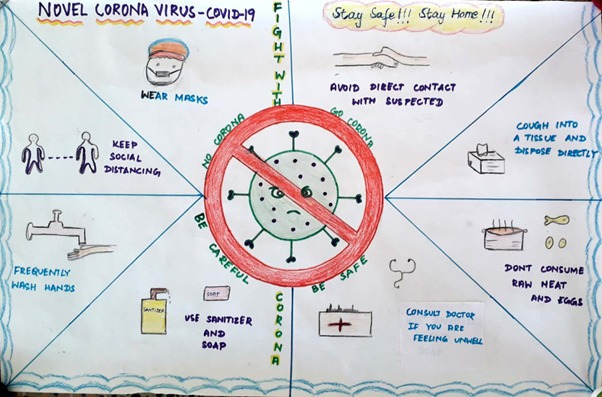 NOVEL CORONA VIRUS-COVID-19
Stay Safe!!! Stay Home!!!
FIGHT WITH
CORONA
WEAR MASKS
AVOID DIRECT CONTACT
WITH SUSPECTED
KEEP
SOCIAL
DISTANCING
COUGH INTO
A TISSUE AND
DISPOSE DIRECTLY
NO CORONA
GO CORONA
BE CAREFUL
BE SAFE
FREQUENTLY
WASH HANDS
DONT CONSUME
RAW MEAT
AND EGGS
SANITIZER
SOAP
USE SANITIZER
AND
SOAP
CONSULT DOCTOR
IF YOU ARE
FEELING UNWELL